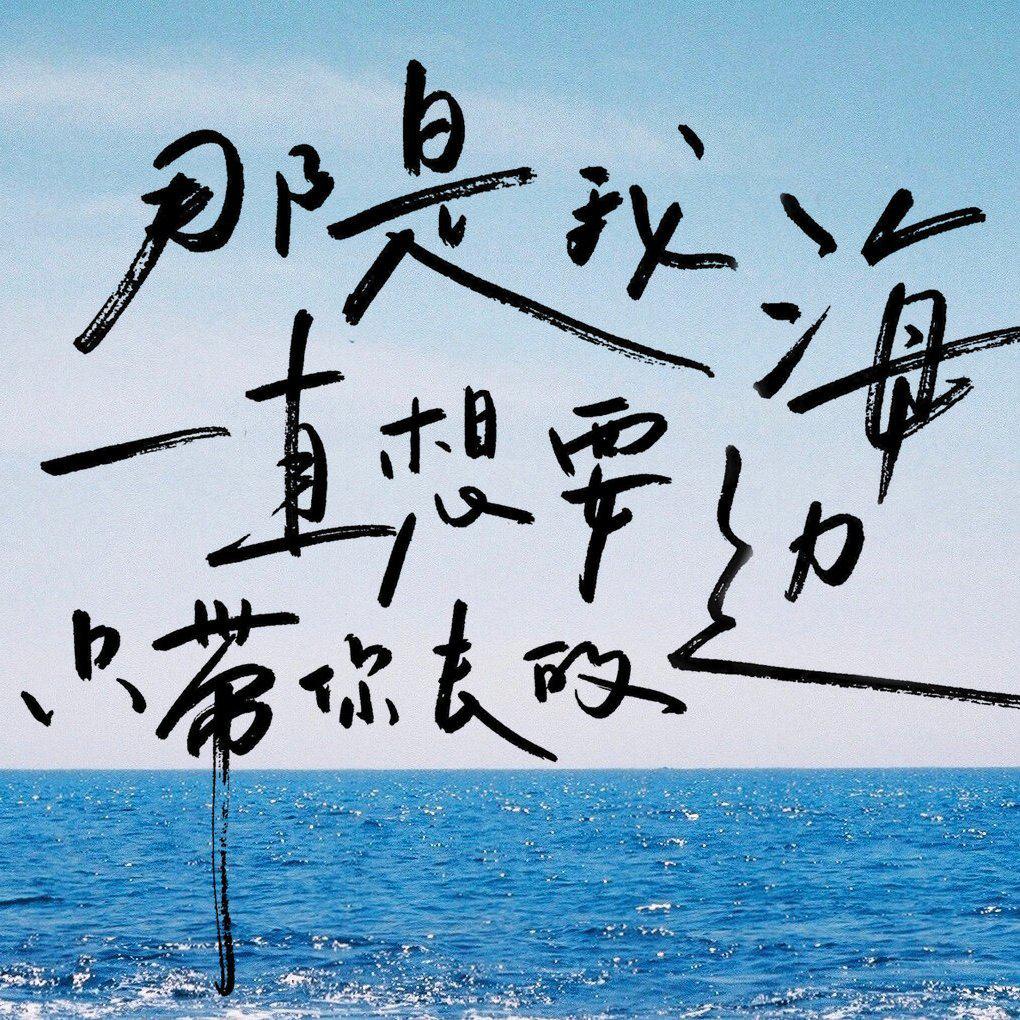 那是我
一直想要
只带你去的
海边